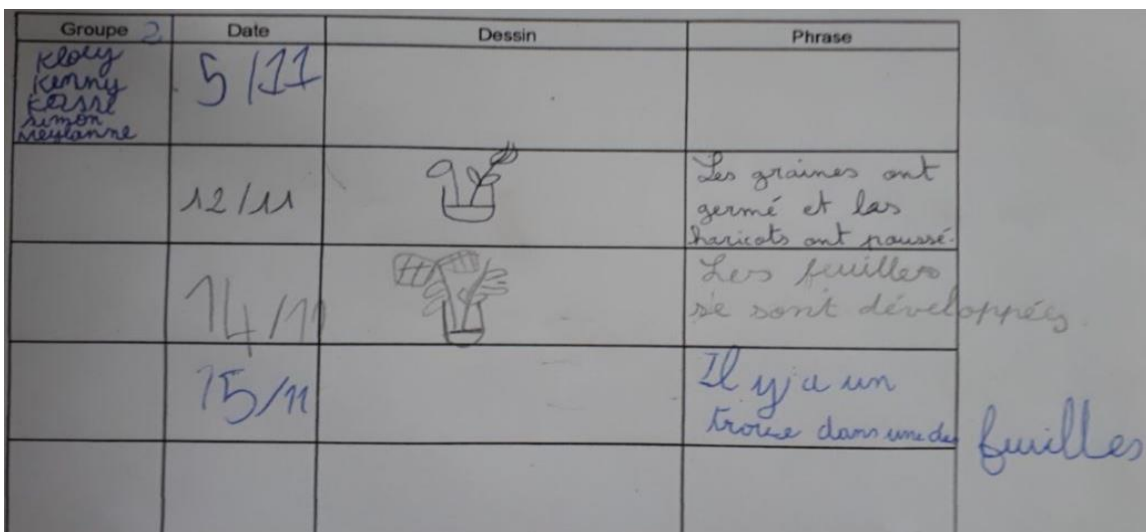 Groupe 2 Date Dessin Phrase
Kenny
simon
5/11
12/11
Les graines ont
germé et las
haricots ont poussé.
14/11
Les feuilles
se sont développées
15/11
Il y a un
trouee dans une des feuilles